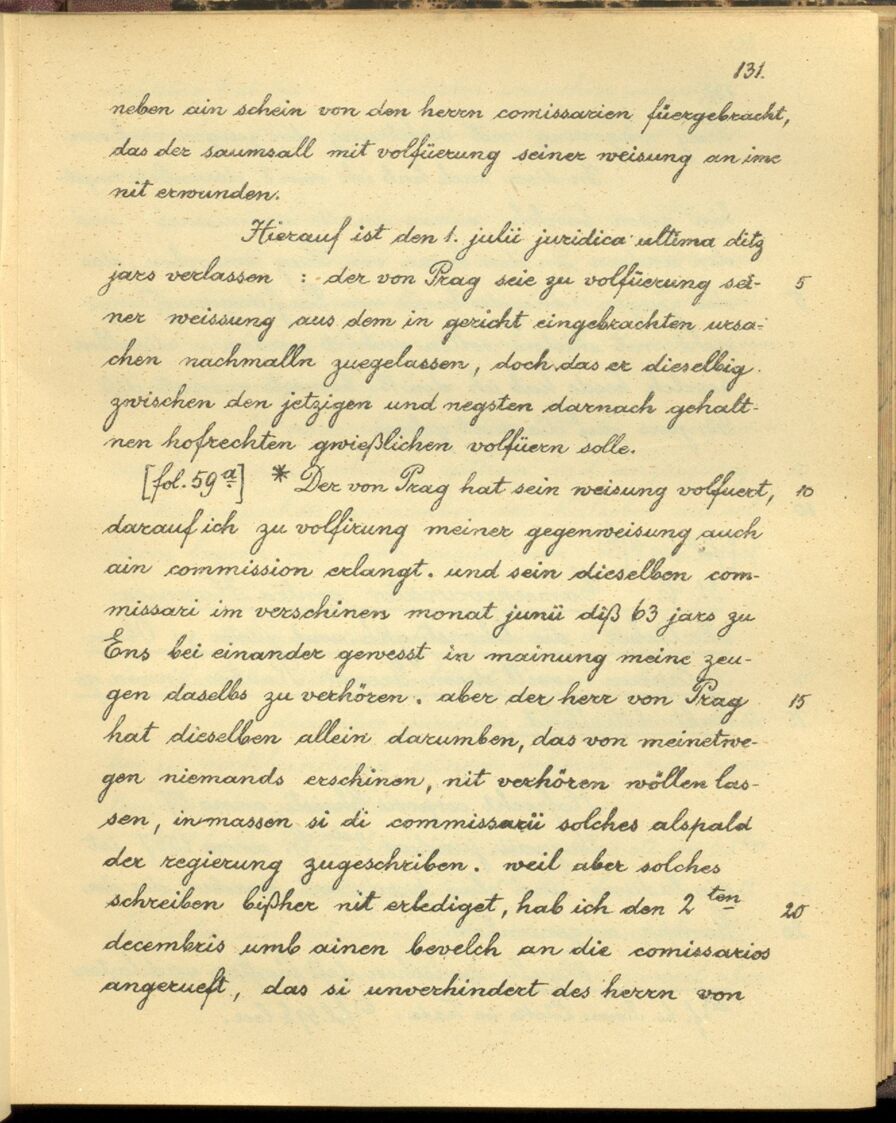 131.
neben ain schein von den herrn comissarien füergebracht,
das der saumsall mit volfüerung seiner weisung an ime
nit erwunden.
Hierauf ist den 1. julii juridica ultima ditz
jars verlassen : der von Prag seie zu volfüerung sei- 5
ner weissung aus dem in gericht eingebrachten ursa-
chen nachmalln zuegelassen, doch das er dieselbig
zwischen den jetzigen und negsten darnach gehalt-
nen hofrechten gwießlichen volfüern solle.
[fol. 59 a] * Der von Prag hat sein weisung volfuert, 10
darauf ich zu volfirung meiner gegenweisung auch
ain commission erlangt. und sein dieselben com-
missari im verschinen monat junii diß 63 jars zu
Ens bei einander gewesst in mainung meine zeu-
gen daselbs zu verhören. aber der herr von Prag 15
hat dieselben allein darumben, das von meinetwe-
gen niemands erschinen, nit verhören wöllen las-
sen, inmassen si di commissarii solches alspald
der regierung zugeschriben. weil aber solches
schreiben bißher nit erlediget, hab ich den 2 ten 20
decembris umb ainen bevelch an die comissarios
angerueft, das si unverhindert des herrn von